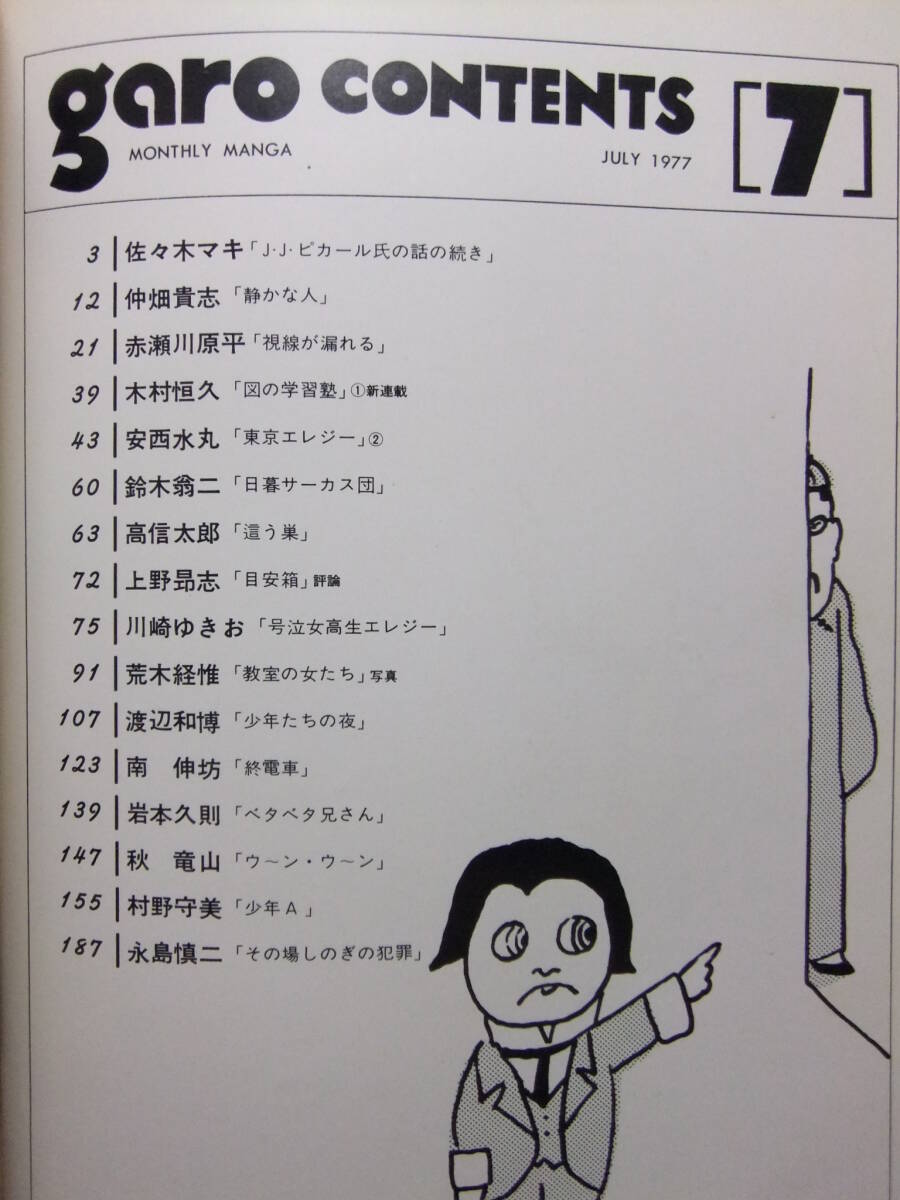 garo CONTENTS [7]
MONTHLY MANGA JULY 1977
3 佐々木マキ「J・J・ピカール氏の話の続き」
12 仲畑貴志「静かな人」
21 赤瀬川原平「視線が漏れる」
39 木村恒久「図の学習塾」①新連載
43 安西水丸「東京エレジー」②
60 鈴木翁二「日暮サーカス団」
63 高信太郎「這う巣」
72 上野昻志「目安箱」評論
75 川崎ゆきお「号泣女高生エレジー」
91 荒木経惟「教室の女たち」写真
107 渡辺和博「少年たちの夜」
123 南 伸坊「終電車」
139 岩本久則「ベタベタ兄さん」
147 秋 竜山「ウ〜ン・ウ〜ン」
155 村野守美「少年A」
187 永島慎二「その場しのぎの犯罪」